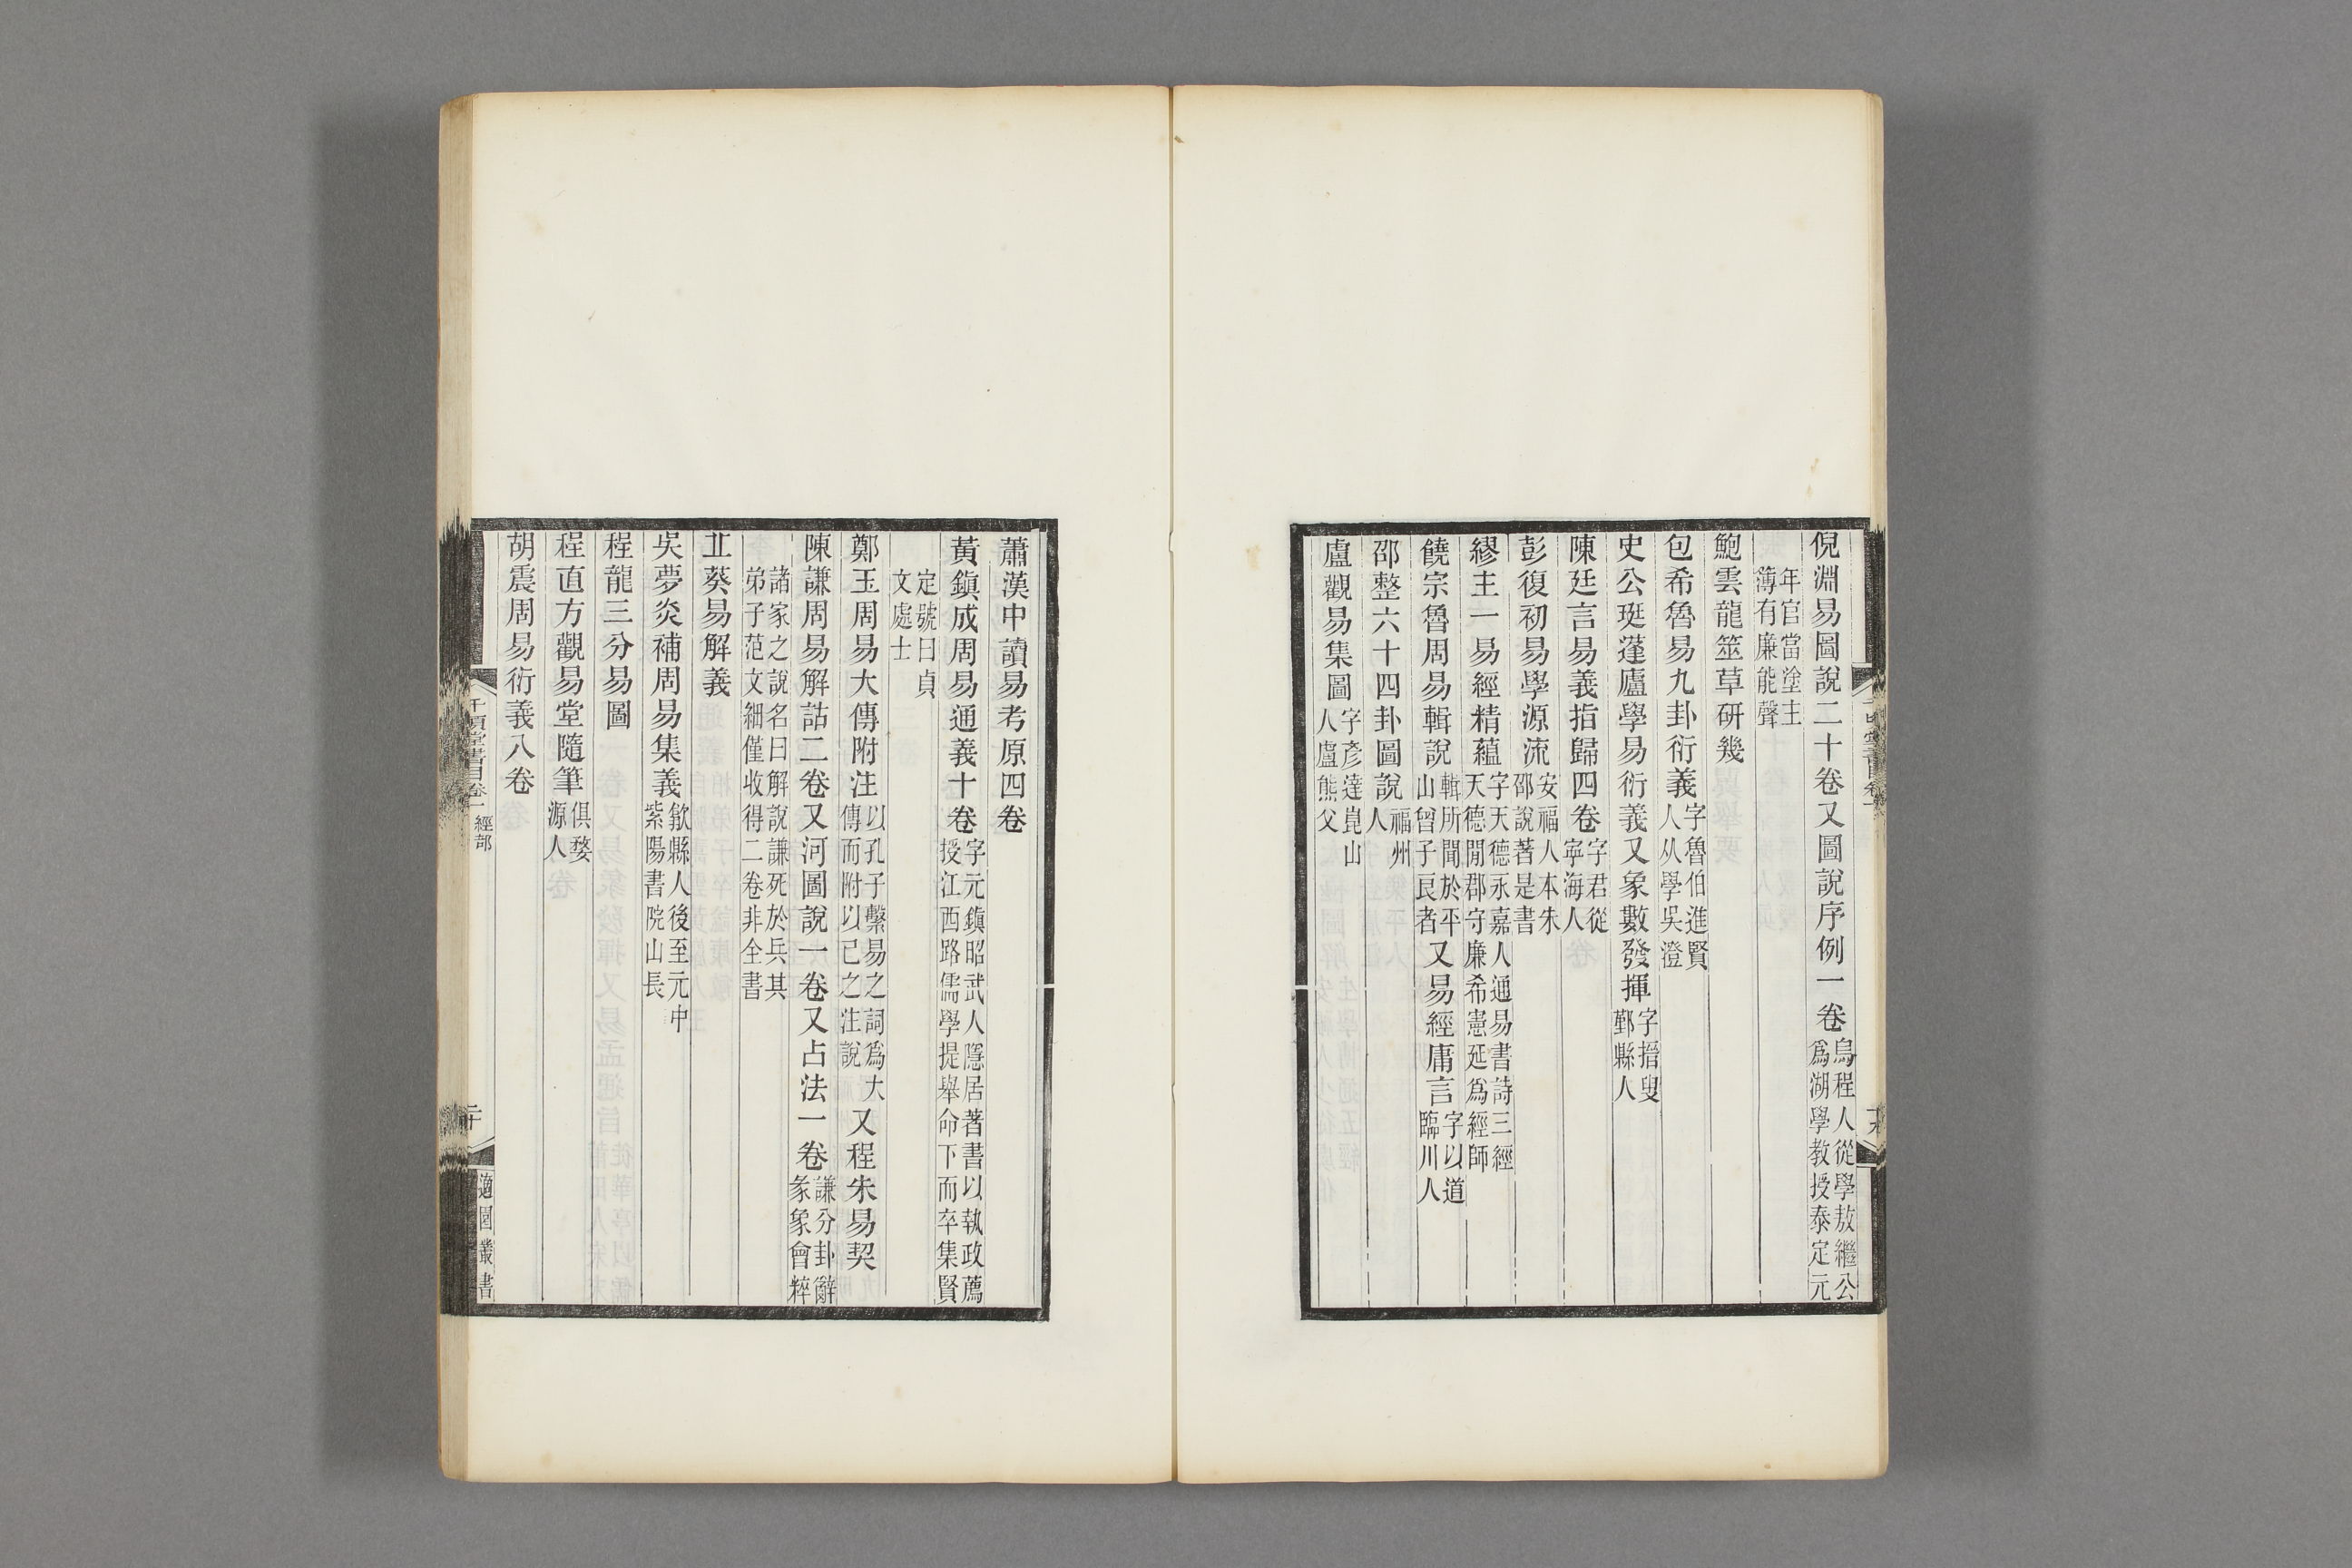 倪淵易圖說二十卷又圖說序例一卷烏程人從學敖繼公爲湖學教授泰定元
年官當塗主簿有廉能聲
鮑雲龍筮草研幾
包希魯易九卦衍義字魯伯進賢人从學吳澄
史公珽蓬廬學易衍義又象數發揮字搢叟鄞縣人
陳廷言易義指歸四卷字君從寧海人
彭復初易學源流安福人本朱邵說著是書
繆主一易經精蘊字天德永嘉人通易書詩三經天德閒郡守廉希憲延爲經師
饒宗魯周易輯說輯所聞於平山曾子良者又易經庸言字以道臨川人
邵整六十四卦圖說福州人
盧觀易集圖字彥達崑山人盧熊父
蕭漢中讀易考原四卷
黃鎮成周易通義十卷字元鎮昭武人隱居著書以執政薦授江西路儒學提舉命下而卒集賢
定號曰貞文處士
鄭玉周易大傳附注以孔子繫易之詞爲大傳而附以己之注說又程朱易契
陳謙周易解詁二卷又河圖說一卷又占法一卷謙分卦辭彖象會粹
諸家之說名曰解說謙死於兵其弟子范文細僅收得二卷非全書
丠葵易解義
吳夢炎補周易集義歙縣人後至元中紫陽書院山長
程龍三分易圖
程直方觀易堂隨筆俱婺源人
胡震周易衍義八卷
千頃堂書目卷一 經部
二十
適園叢書